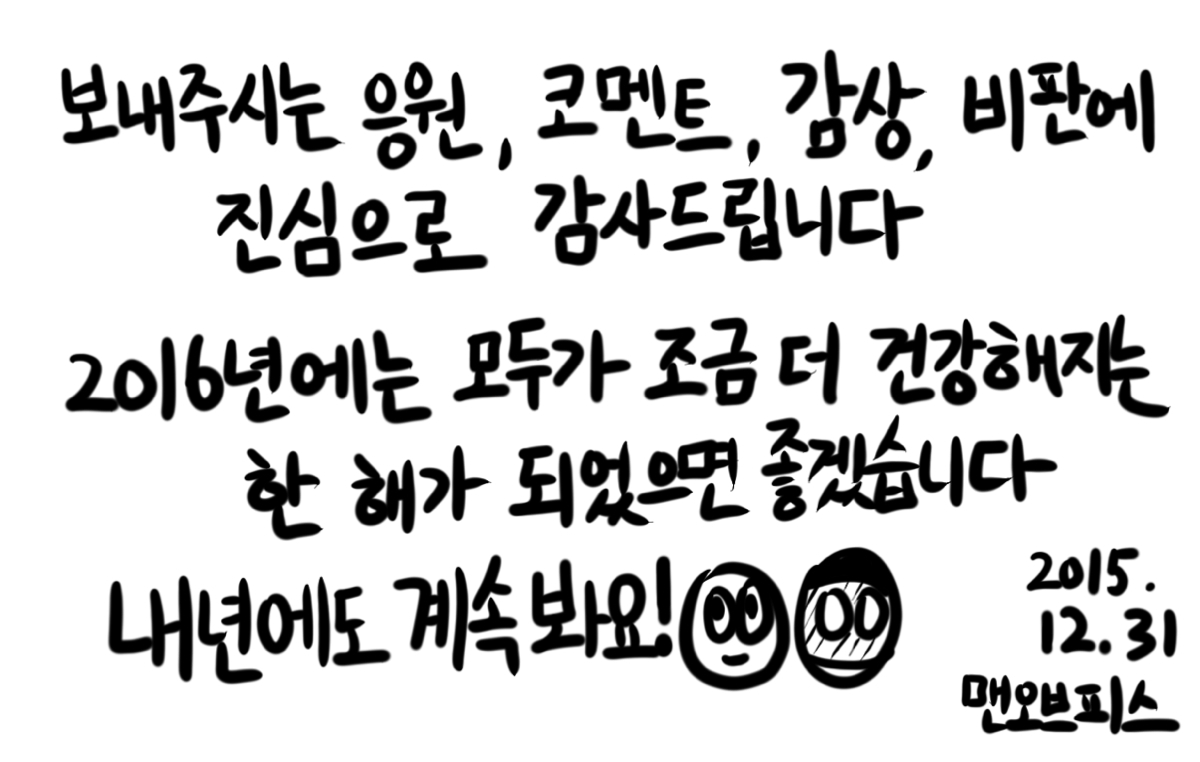 보내주시는 응원, 코멘트, 감상, 비판에
진심으로 감사드립니다
2016년에는 모두가 조금 더 건강해지는
한 해가 되었으면 좋겠습니다
내년에도 계속 봐요!
2015.
12.31
맨오브피스